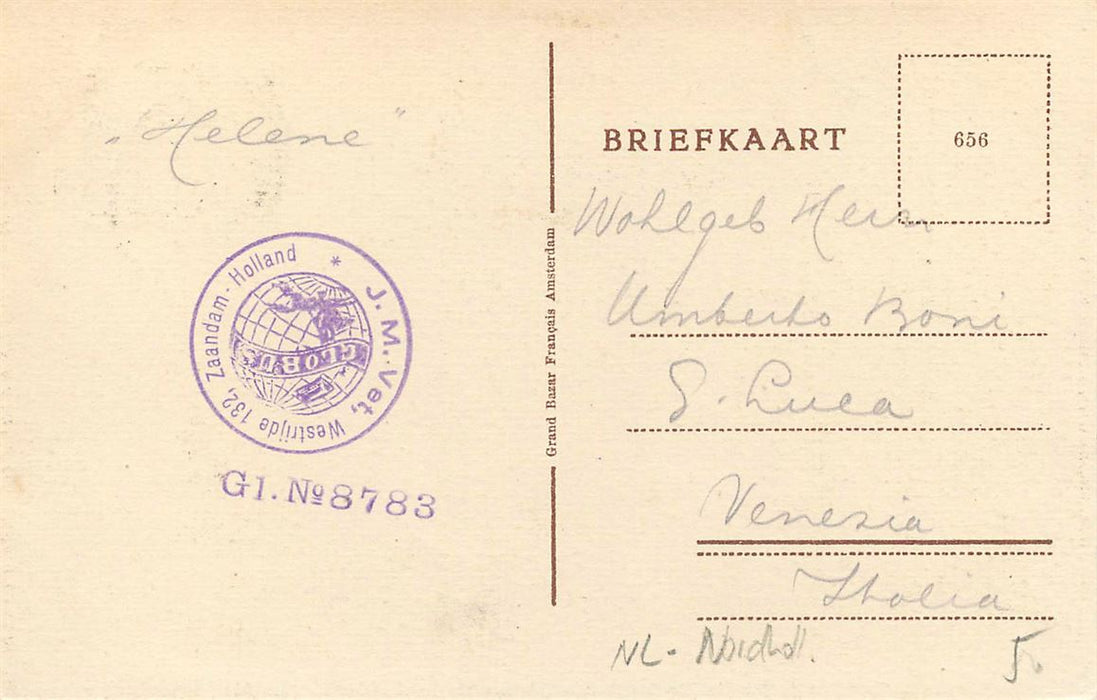 „Helene"
J. M. Vet, Westrijde 132, Zaandam - Holland *
GLOBUS
Gl. № 8783
Grand Bazar Français Amsterdam
BRIEFKAART
656
Wohlgeb Herrn
Umberto Boni
S. Luca
Venezia
Italia
NL - Nordholl.
5